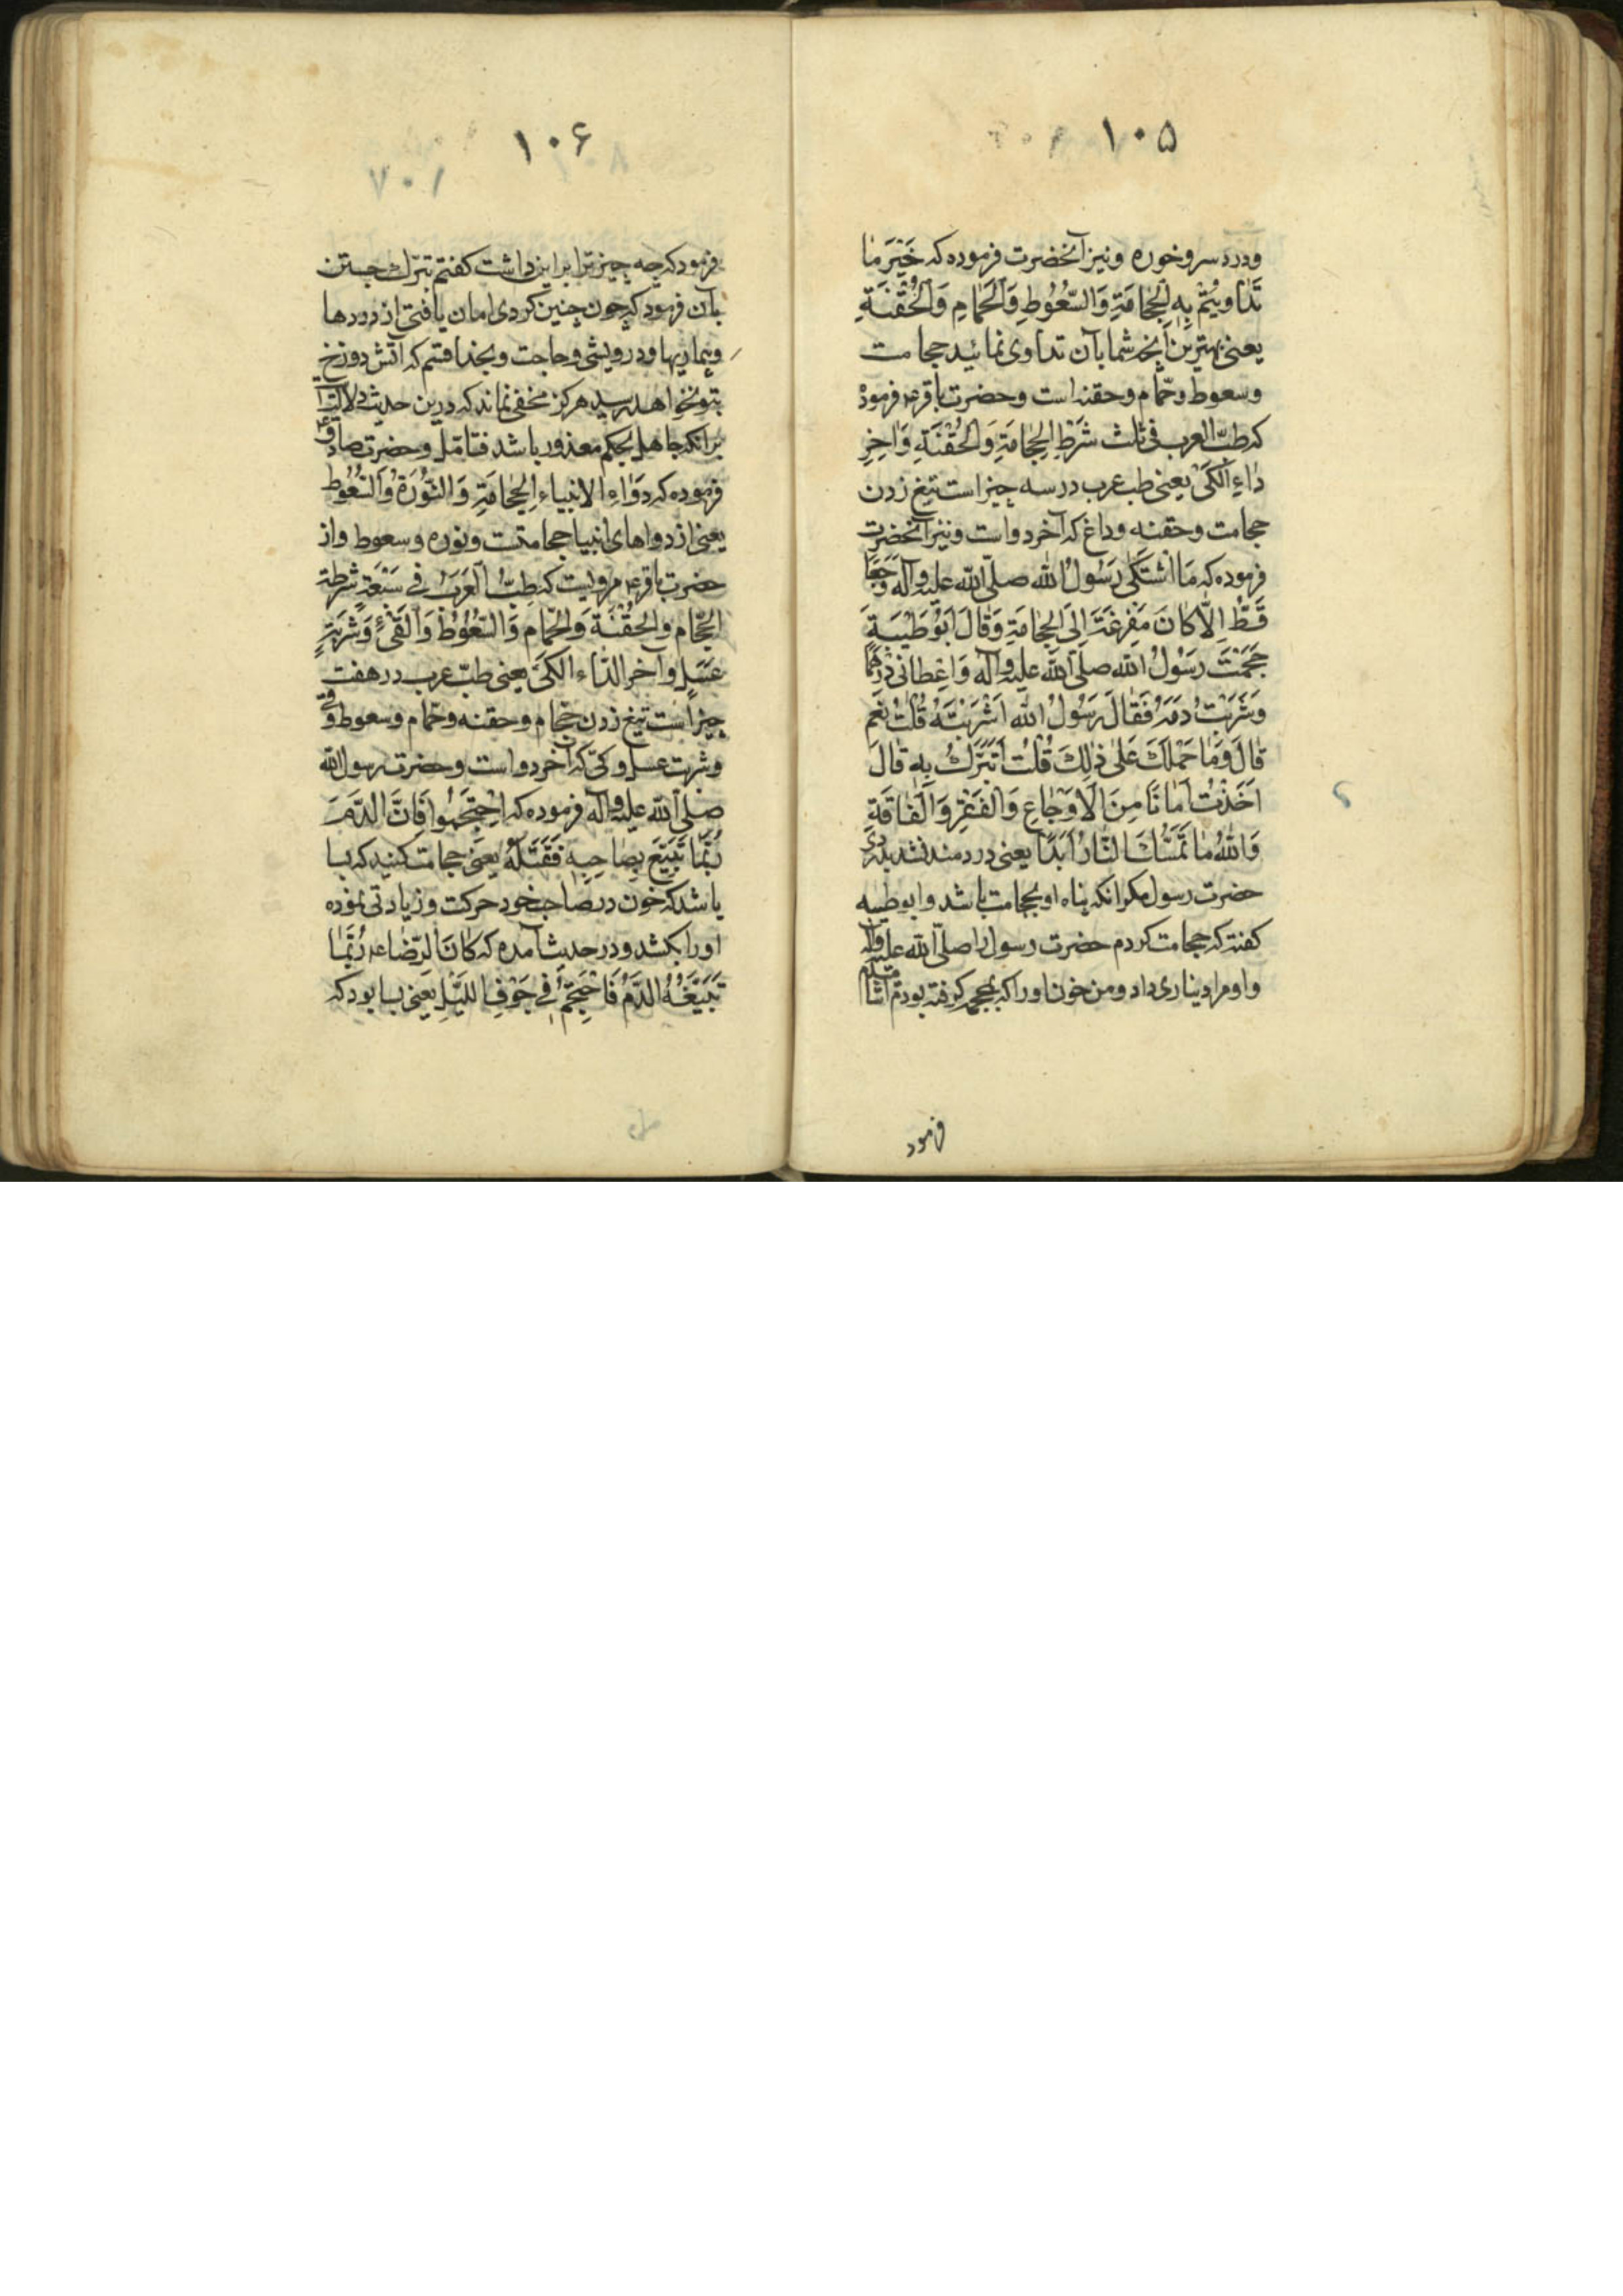 ۱۰۵
ودرد سر وخوره ونیز آنحضرت فرموده که خَیْرَ مٰا
تَدٰاویْتُمْ بِهِ الْحِجٰامَةِ وَالسّعُوُطِ وَالْحَمّٰامِ وَالْحُقْنَةِ
یعنی بهترین آنچه شما بآن تداوی نمائید حجامت
وسعوط وحمّام وحقنه است وحضرت باقر ع فرموده
که طبّ العرب فی ثلث شَرْطِ الْحِجٰامَةِ وَالْحُقْنَةِ وَاٰخِرِ
دٰاءِ الْکَیّ یعنی طب عرب در سه چیز است تیغ زدن
حجامت وحقنه وداغ که آخر دواست ونیز آنحضرت
فرموده که مَا اشْتَکٰی رَسُولُ الله صلّی الله علیه وآله وَجَعًا
قَطُّ اِلّٰا کٰانَ مَفْزَعَهُ اِلَی الْحِجٰامَةِ وَقٰالَ اَبُوطَیْبَةِ
حَجَمْتُ رَسُولُ الله صلّی الله علیه وآله وَاَعْطانی دِرْهَمًا
وَشَرَبْتُ دَمَهُ فَقٰالَ رَسُولُ الله اَشَرَبْتَهُ قُلْتُ نَعَم
قٰالَ وَمٰا حَمَلَکَ عَلٰی ذٰلِکَ قُلْتُ اَتَبَرَّکُ بِهِ قٰالَ
اَخَذْتَ اَمٰانًا مِنَ الْاَوْجٰاعِ وَالْفَقْرِ وَالْفٰاقَةِ
وَاللهُ مٰا تَمَسُّکَ النّٰارُ اَبَدًا یعنی دردمند نشد بدردی
حضرت رسول مکر انکه پناه او بحجامت باشد وابوطیبه
کفته که حجامت کردم حضرت رسول را صلّی الله علیه وآله
واو مرا دیناری داد ومن خون او را که بمحجمه کرفته بودم
فرمود
۱۰۶
فرمود که چه چیز ترا بر این داشت کفتم تبرّک جستن
بآن فرمود که چون چنین کردی امان یافتی از دردها
وبیماریها ودرویشی وحاجت وبخدا قسم که آتش دوزخ
بتو نخواهد رسید هرکز مخفی نماند که درین حدیث دلالت
بر انکه جاهل بحکم معذور باشد فتامّل وحضرت صادق
فرموده که دَوٰاءِ الانبیاءِ الْحِجٰامَةِ وَالنُّورَةُ وَالسُّعُوط
یعنی از دواهای انبیا حجامتت ونوره وسعوط واز
حضرت باقر ع مرویست که طِبُّ الْعَرَبُ فی سَبْعَةِ شَرْطة
الْحَجّام والحُقْنَة وَالْحَمّام وَالسّعُوُطْ وَالْقَیْءُ وَشَرْبَةٍ
عَسَلٍ وآخر الدّاء الکَیّ یعنی طبّ عرب در هفت
چیز است تیغ زدن حجّام وحقنه وحمّام وسعوط وقی
وشربت عسل وکیّ که آخر دواست وحضرت رسول الله
صلی الله علیه وآله فرموده که اِحْتَجِمُوا فَاِنَّ الدَّمَ
رُبَّمٰا تَبَیَّغَ بِصٰاحِبِهِ فَقَتَلَهُ یعنی حجامت کنید که بسا
باشد که خون در صاحب خود حرکت وزیادتی نموده
او را بکشد ودر حدیث آمده که کٰانَ الرّضٰا ع رُبَّمٰا
تَبَیَّغَهُ الدَّمُ فَاحْتَجَمَ فی جَوْفِ اللَّیْلِ یعنی بسا بود که